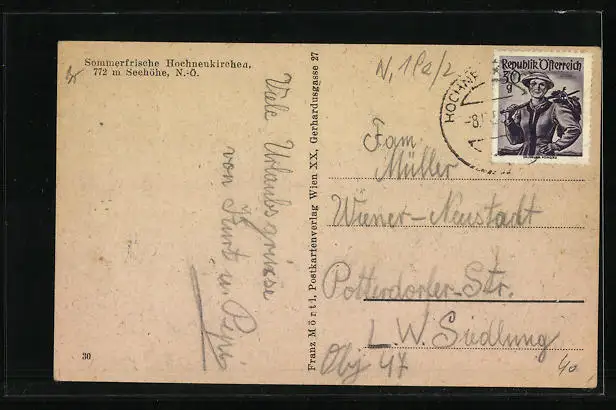 Sommerfrische Hochneukirchen,
772 m Seehöhe, N.-Ö.
Viele Urlaubsgrüsse
von Kurt u. Pepi
30
Franz Mörtl, Postkartenverlag Wien XX, Gerhardusgasse 27
N, 18a/2
HOCHNE
-8.
Republik Österreich
30
g
Fam.
Müller
Wiener-Neustadt
Potterdorfer-Str.
L.W. Siedlung
Obj 47
40